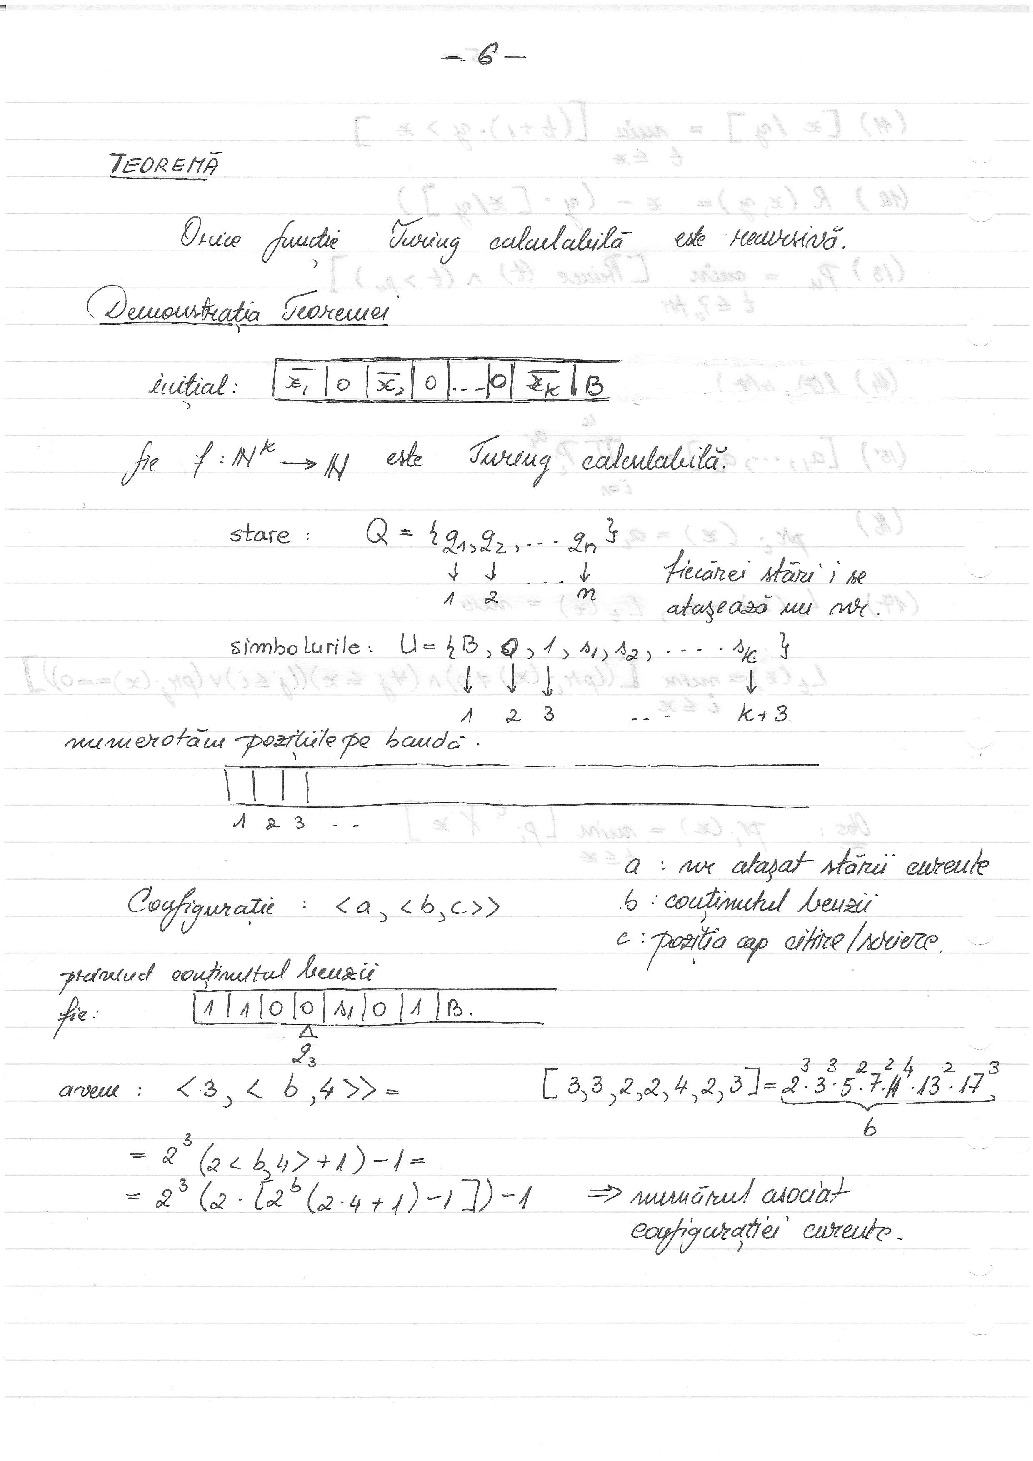 - 6 -
TEOREMĂ
Orice funcție Turing calculabilă este recursivă.
Demonstrația Teoremei
inițial: | x̄₁ | 0 | x̄₂ | 0 | ... | 0 | x̄ₖ | B
fie f : ℕᵏ → ℕ este Turing calculabilă.
stare : Q = { q₁, q₂, ... qₙ }
↓ ↓ ... ↓ fiecărei stări i se
1 2 n atașează un nr.
simbolurile: U = { B, 0, 1, s₁, s₂, ..... sₖ }
↓ ↓ ↓ ↓
1 2 3 ... k+3
numerotăm pozițiile pe bandă.
1 2 3 ..
a : nr atașat stării curente
Configurație : <a, <b, c>> b : conținutul benzii
c : poziția cap citire/scriere.
privind conținutul benzii
fie: | 1 | 1 | 0 | 0 | s₁ | 0 | 1 | B.
q₃
avem : <3, < b, 4>> = [3,3,2,2,4,2,3] = 2³·3³·5²·7²·11⁴·13²·17³,
b
= 2³(2<b,4>+1)-1=
= 2³(2·[2ᵇ(2·4+1)-1])-1 ⇒ numărul asociat
configurației curente.